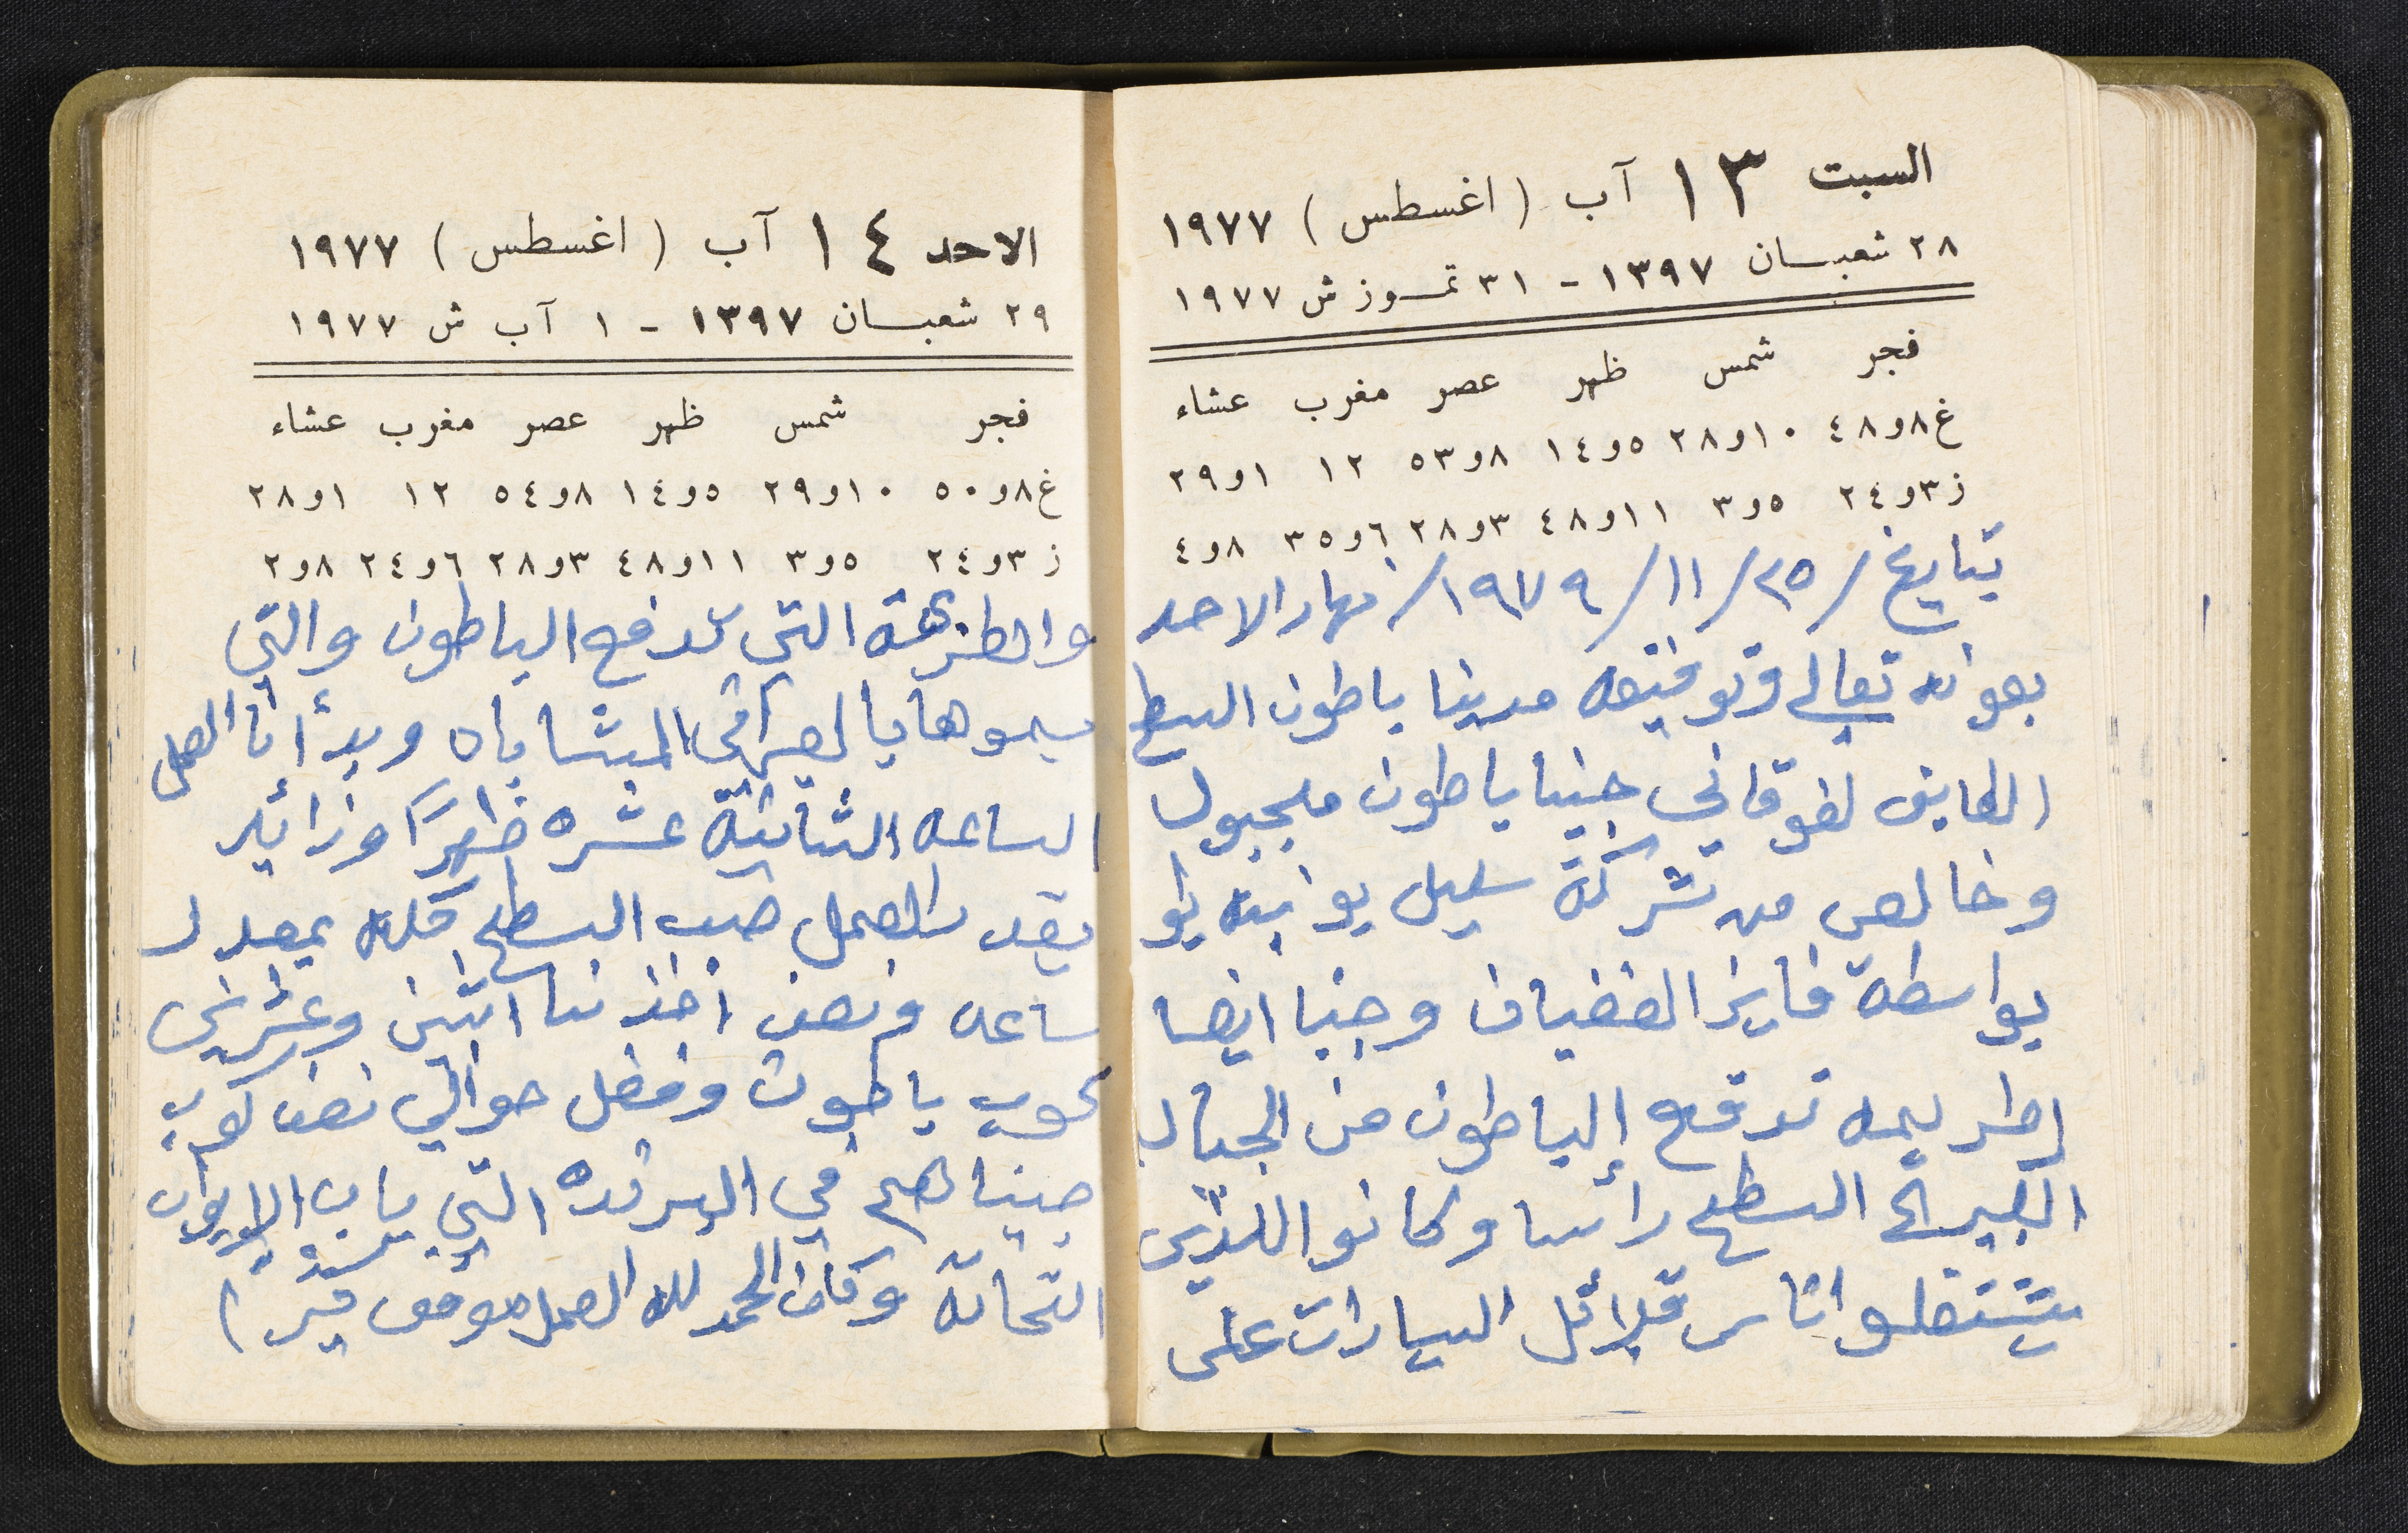 السبت ١٣ آب ( اغسطس ) ١٩٧٧
٢٨ شعبان ١٣٩٧ - ٣١ تموز ش ١٩٧٧
فجر شمس ظهر عصر مغرب عشاء
غ ٨و٤٨ ١٠و٢٨ ٥و١٤ ٨و٥٣ ١٢ ١و٢٩
ز ٣و٢٤ ٥و٣ ١١و٤٨ ٣و٢٨ ٦و٣٥ ٨و٤
بتايخ / ٢٥ / ١١ / ١٩٧٩ / نهار الاحد
بعونه تعالى وتوفيقه مدينا باطون السطح
الطابق لفوقاني جبنا باطون مجبول
وخالص من شركة سليل يونيه
بواسطة فايز الغضبان وجبنا ايضا
اطريمه تدفع الباطون من الجبال
الى السطح رأسا وكانو اللذين
يشتغلوا اناس قلائل السيارات على
الاحد ١٤ آب ( اغسطس ) ١٩٧٧
٢٩ شعبان ١٣٩٧ - ١ آب ش ١٩٧٧
فجر شمس ظهر عصر مغرب عشاء
غ ٨و٥٠ ١٠و٢٩ ٥و١٤ ٨و٥٤ ١٢ ١و٢٨
ز ٣و٢٤ ٥و٣ ١١و٤٨ ٣و٢٨ ٦و٢٤ ٨و٢
التي تدفع الباطون والتي
يسموها المشاباه وبدأنا العمل
الساعه الثانية عشره ظهراً وزائير
بعد العمل صب السطح كله بمعدل
ساعه ونصف اخذنا اثنين وعشرين
كوب باطون وفضل حوالي نصف كوب
صبيناهم في البرنده التي باب الايوان
التحاتة وكان الحمد لله العمل موفق